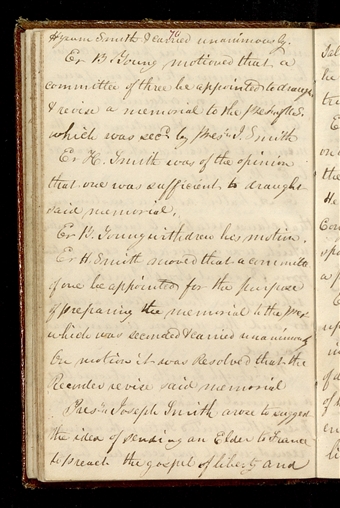 Hyrum Smith & carried unanimously.
Er B. Young motioned that a
committee of three be appointed to draught
& revise a memorial to the
which was secd by Prest J. Smith
Er H. Smith was of the opinion
that one was sufficient to draught
said memorial,
Er B. Young withdrew his motion.
Er H. Smith moved that a committe
of one be appointed for the purpose
of preparing the memorial to the Prest
which was seconded & carried unanimously
On motion it was Resolved that the
Recorder revise said memorial
Prest Joseph Smith arose to suggest
the idea of sending an Elder to France
to preach the gospel of liberty and